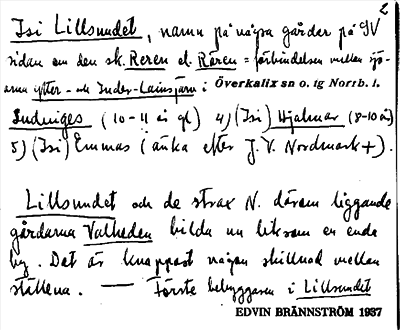 2
Isi Lillsundet, namn på några gårdar på SV
sidan om den sk. Reren el. Rören = förbindelsen mellan sjö-
arna Ytter- och Inder-Lainsjärv i Överkalix sn o. tg Norrb. l.
Ludviges (10-11 år gl) 4) (Isi) Hjalmar (8-10 år)
5) (Isi) Emmas (änka efter J. V. Nordmark +).
Lillsundet och de strax N. därom liggande
gårdarna Valheden bilda nu liksom en enda
by. Det är knappast någon skillnad mellan
ställena. — Förste bebyggaren i Lillsundet
EDVIN BRÄNNSTRÖM 1937